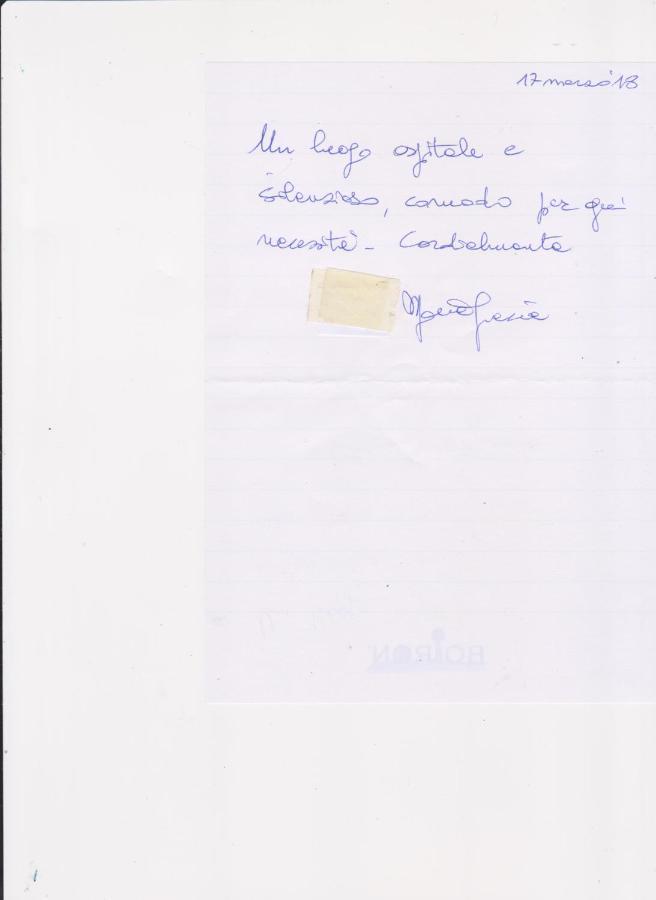 17 marzo '18
Un luogo ospitale e
silenzioso, comodo per ogni
necessità - Cordialmente
Maria Grazia
BOIRON